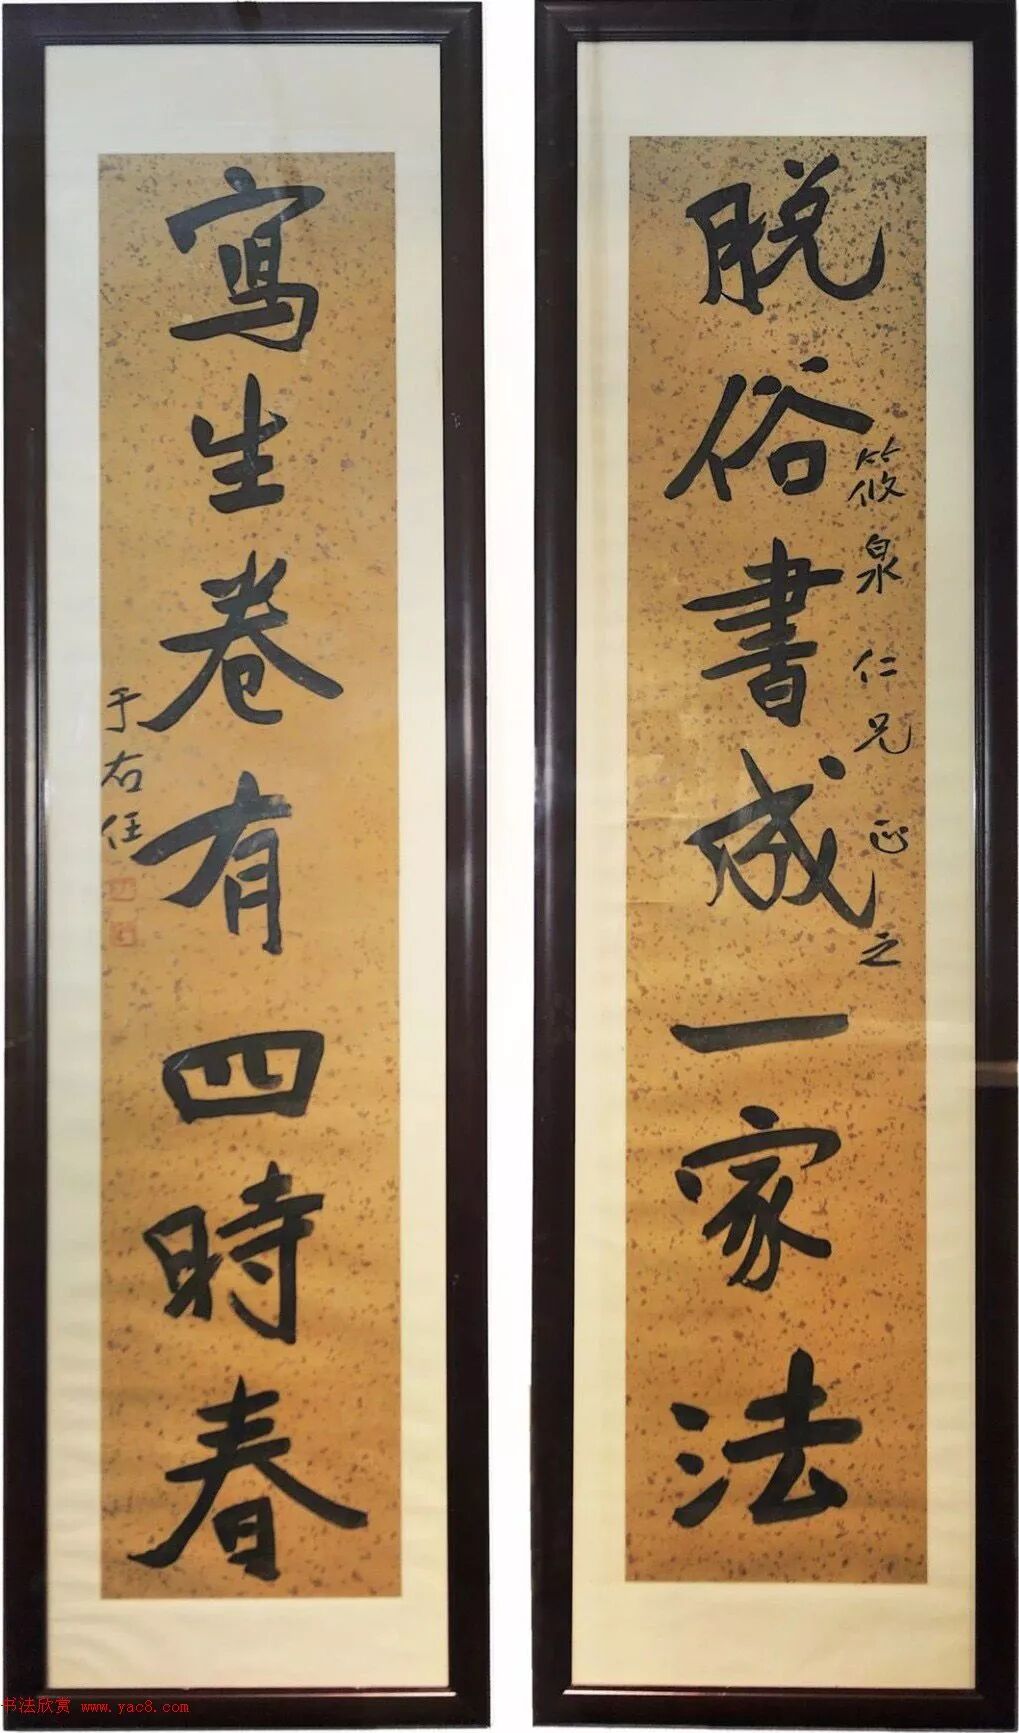 脱俗書成一家法
筱泉仁兄正之
寫生卷有四時春
于右任
书法欣赏 www.yac8.com